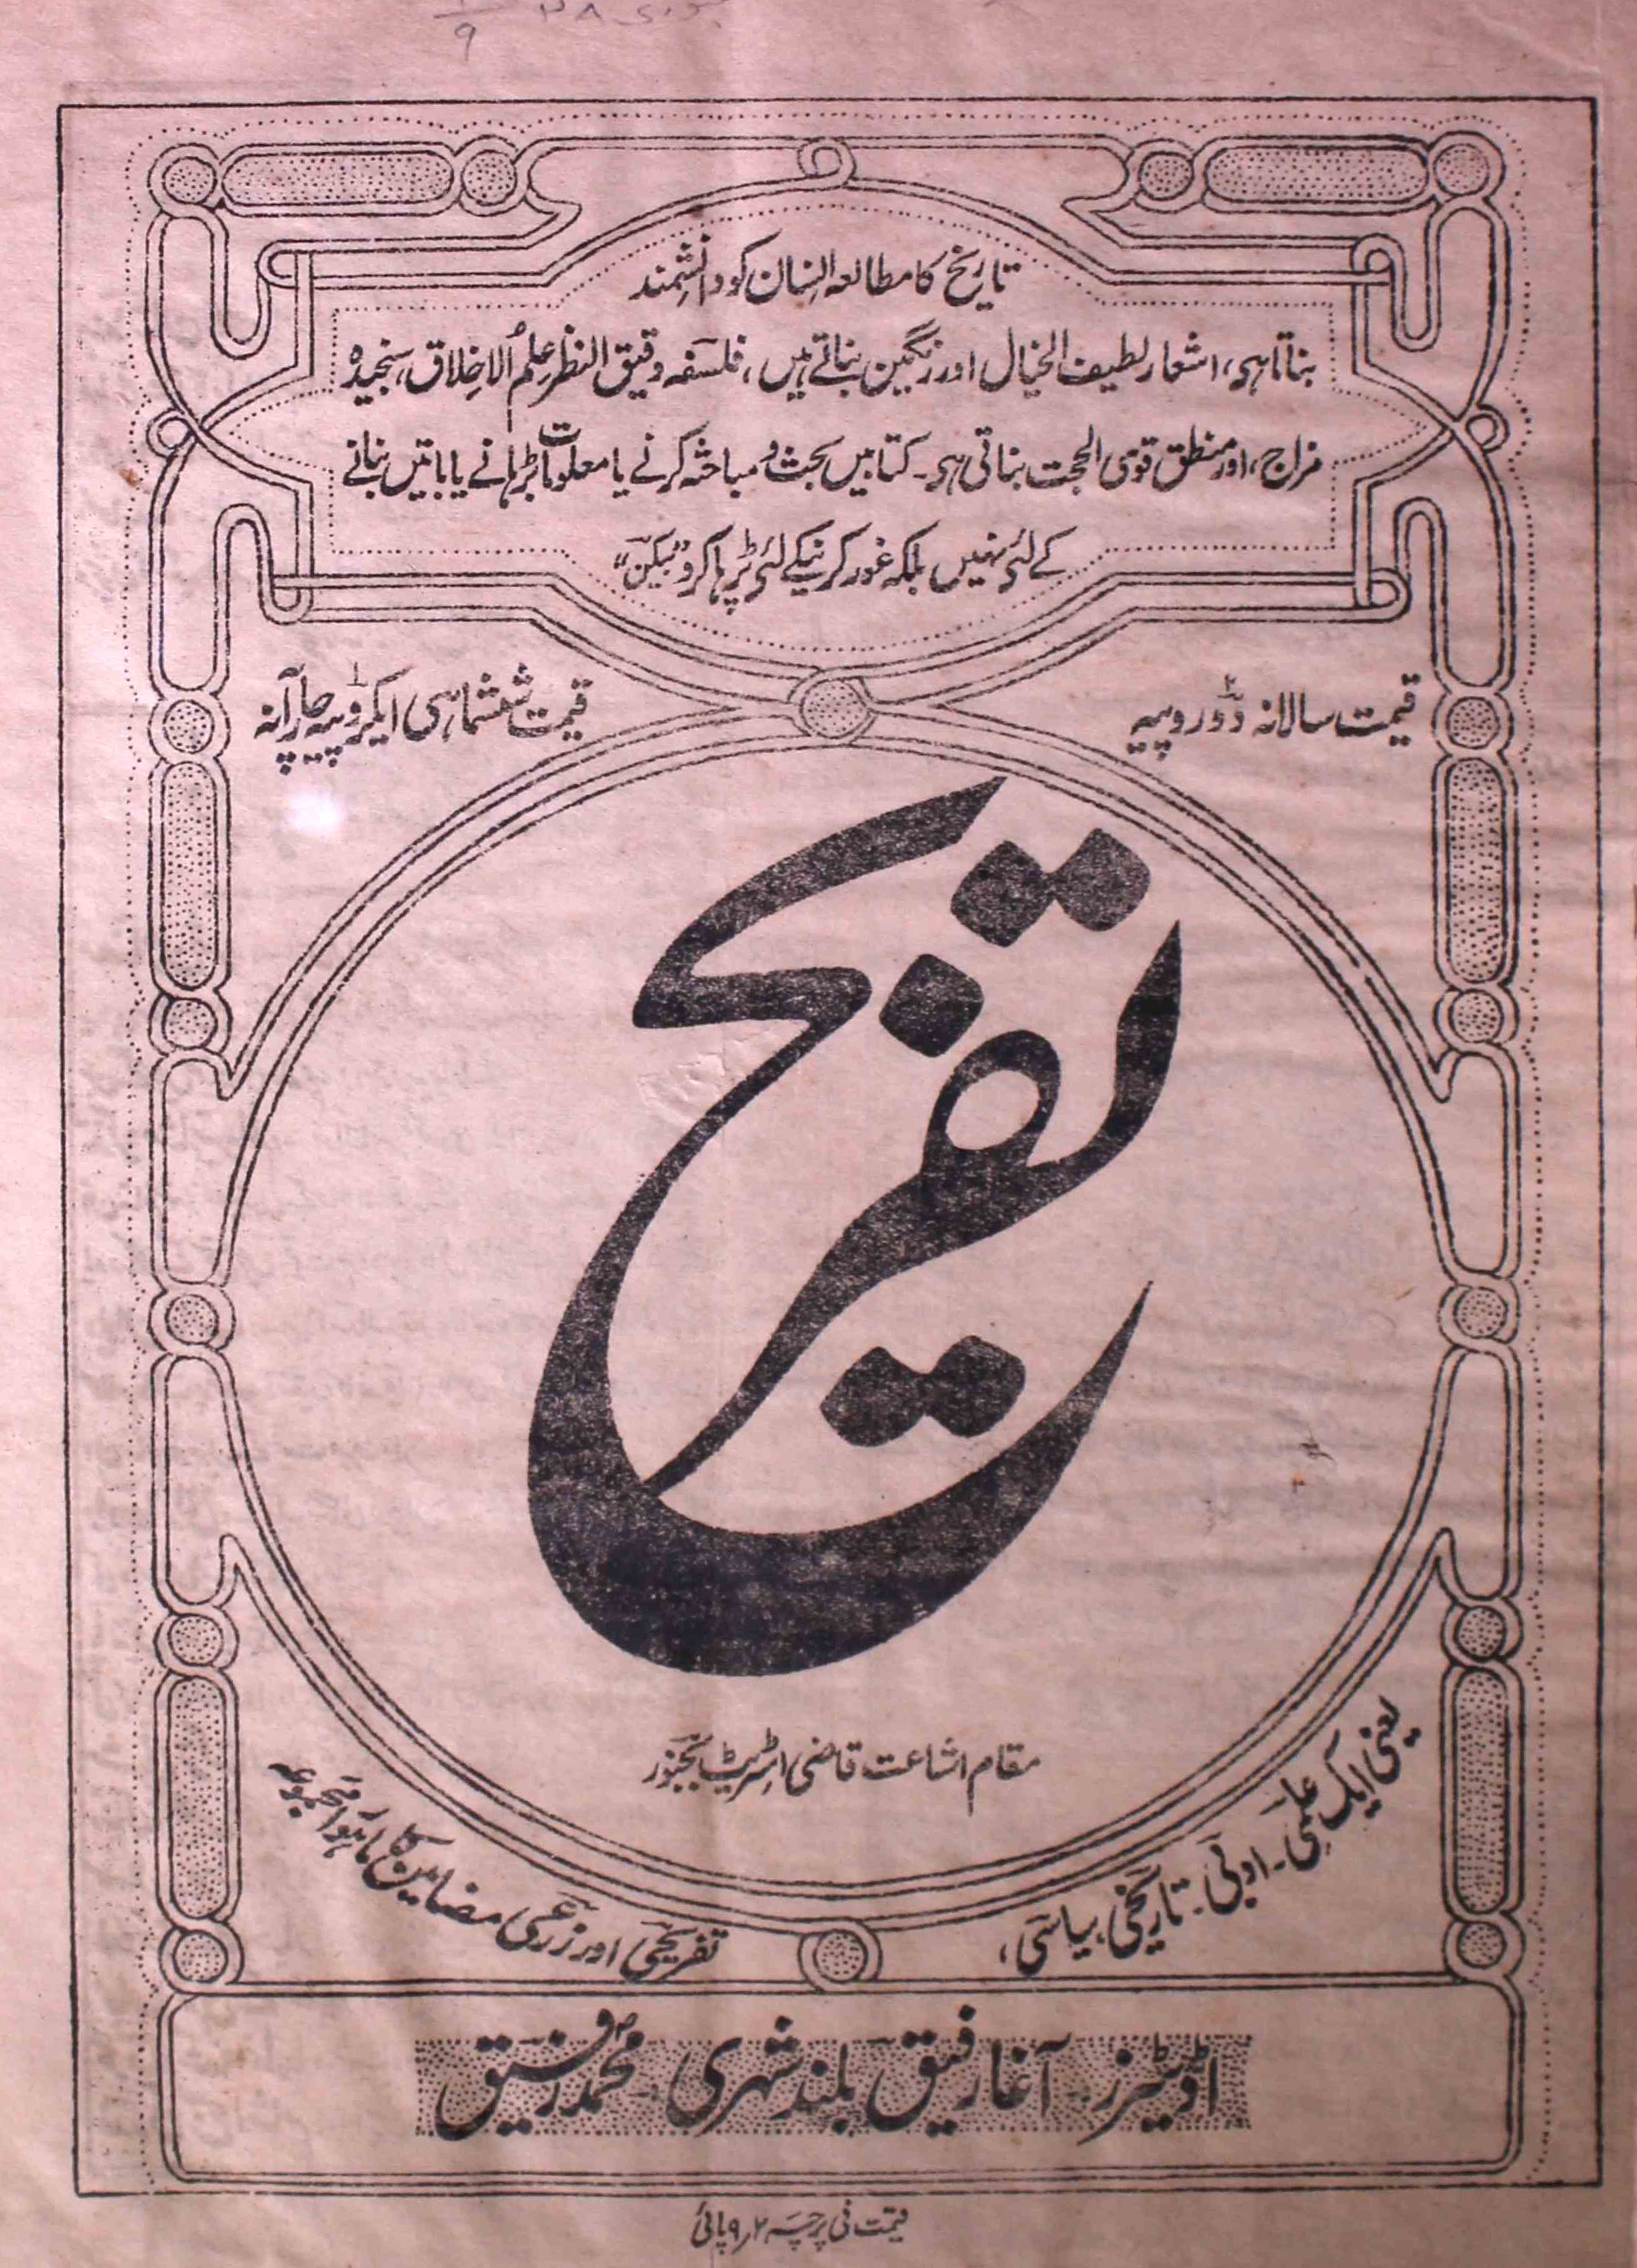 تاریخ کا مطالعہ انسان کو دانشمند
بناتا ہی، اشعار لطیف الخیال اور رنگین بناتے ہیں، فلسفہ دقیق النظر علم الاخلاق، سنجیدہ
مزاج، اور منطق قوی الحجت بناتی ہی۔ کتابیں بحث و مباحثہ کرنے یا معلومات بڑہانے یا باتیں بنانے
کے لئی نہیں بلکہ غور کرنیکے لئی پڑہا کرو "بیکن"
قیمت سالانہ دو روپیہ
قیمت ششماہی ایکروپیہ چار آنہ
تفریح
مقام اشاعت قاضی اسٹریٹ بجنور
یعنی ایک علمی۔ ادبی۔ تاریخی، سیاسی،
تفریحی اور زرعی مضامین کا ماہوار مجموعہ
اڈیٹرز۔ آغا رفیق بلند شہری۔ محمد رفیق
قیمت فی پرچہ ۲ر ۹ پائی